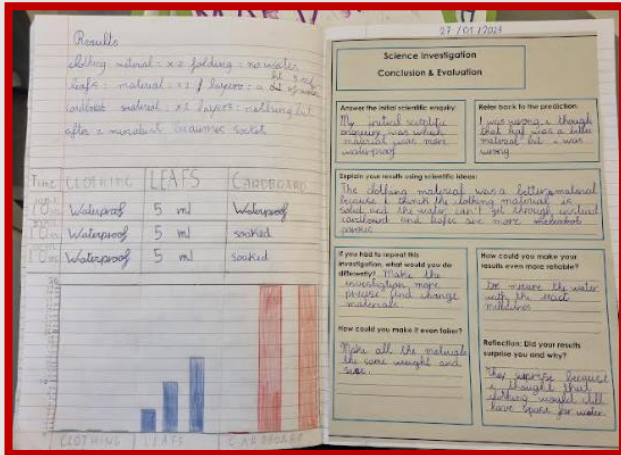 Results
clothing material = x2 folding = no water
leafs = material = x2 / layers = a bit of water
cardboard material = x2 layers = nothing but
after 2 minutes it becomes soaked
Time CLOTHING LEAFS CARDBOARD
Waterproof 5 ml Waterproof
Waterproof 5 ml soaked
Waterproof 5 ml soaked
CLOTHING LEAFS CARDBOARD
27/01/2023
Science Investigation
Conclusion & Evaluation
Answer the initial scientific enquiry:
My initial scientific
enquiry was which
material were more
waterproof
Refer back to the prediction:
I was wrong i though
that leaf was a better
material but i was
wrong
Explain your results using scientific ideas:
The clothing material was a better material
because I think the clothing material is
solid and the water can't get through instead
cardboard and leafs are more
If you had to repeat this
investigation, what would you do
differently? Make the
investigation more
precise and change
materials.
How could you make it even fairer?
Make all the materials
the same weight and
size.
How could you make your
results even more reliable?
measure the water
with the exact
Reflection: Did your results
surprise you and why?
They suprise because
i thought that
clothing would still
have space for water